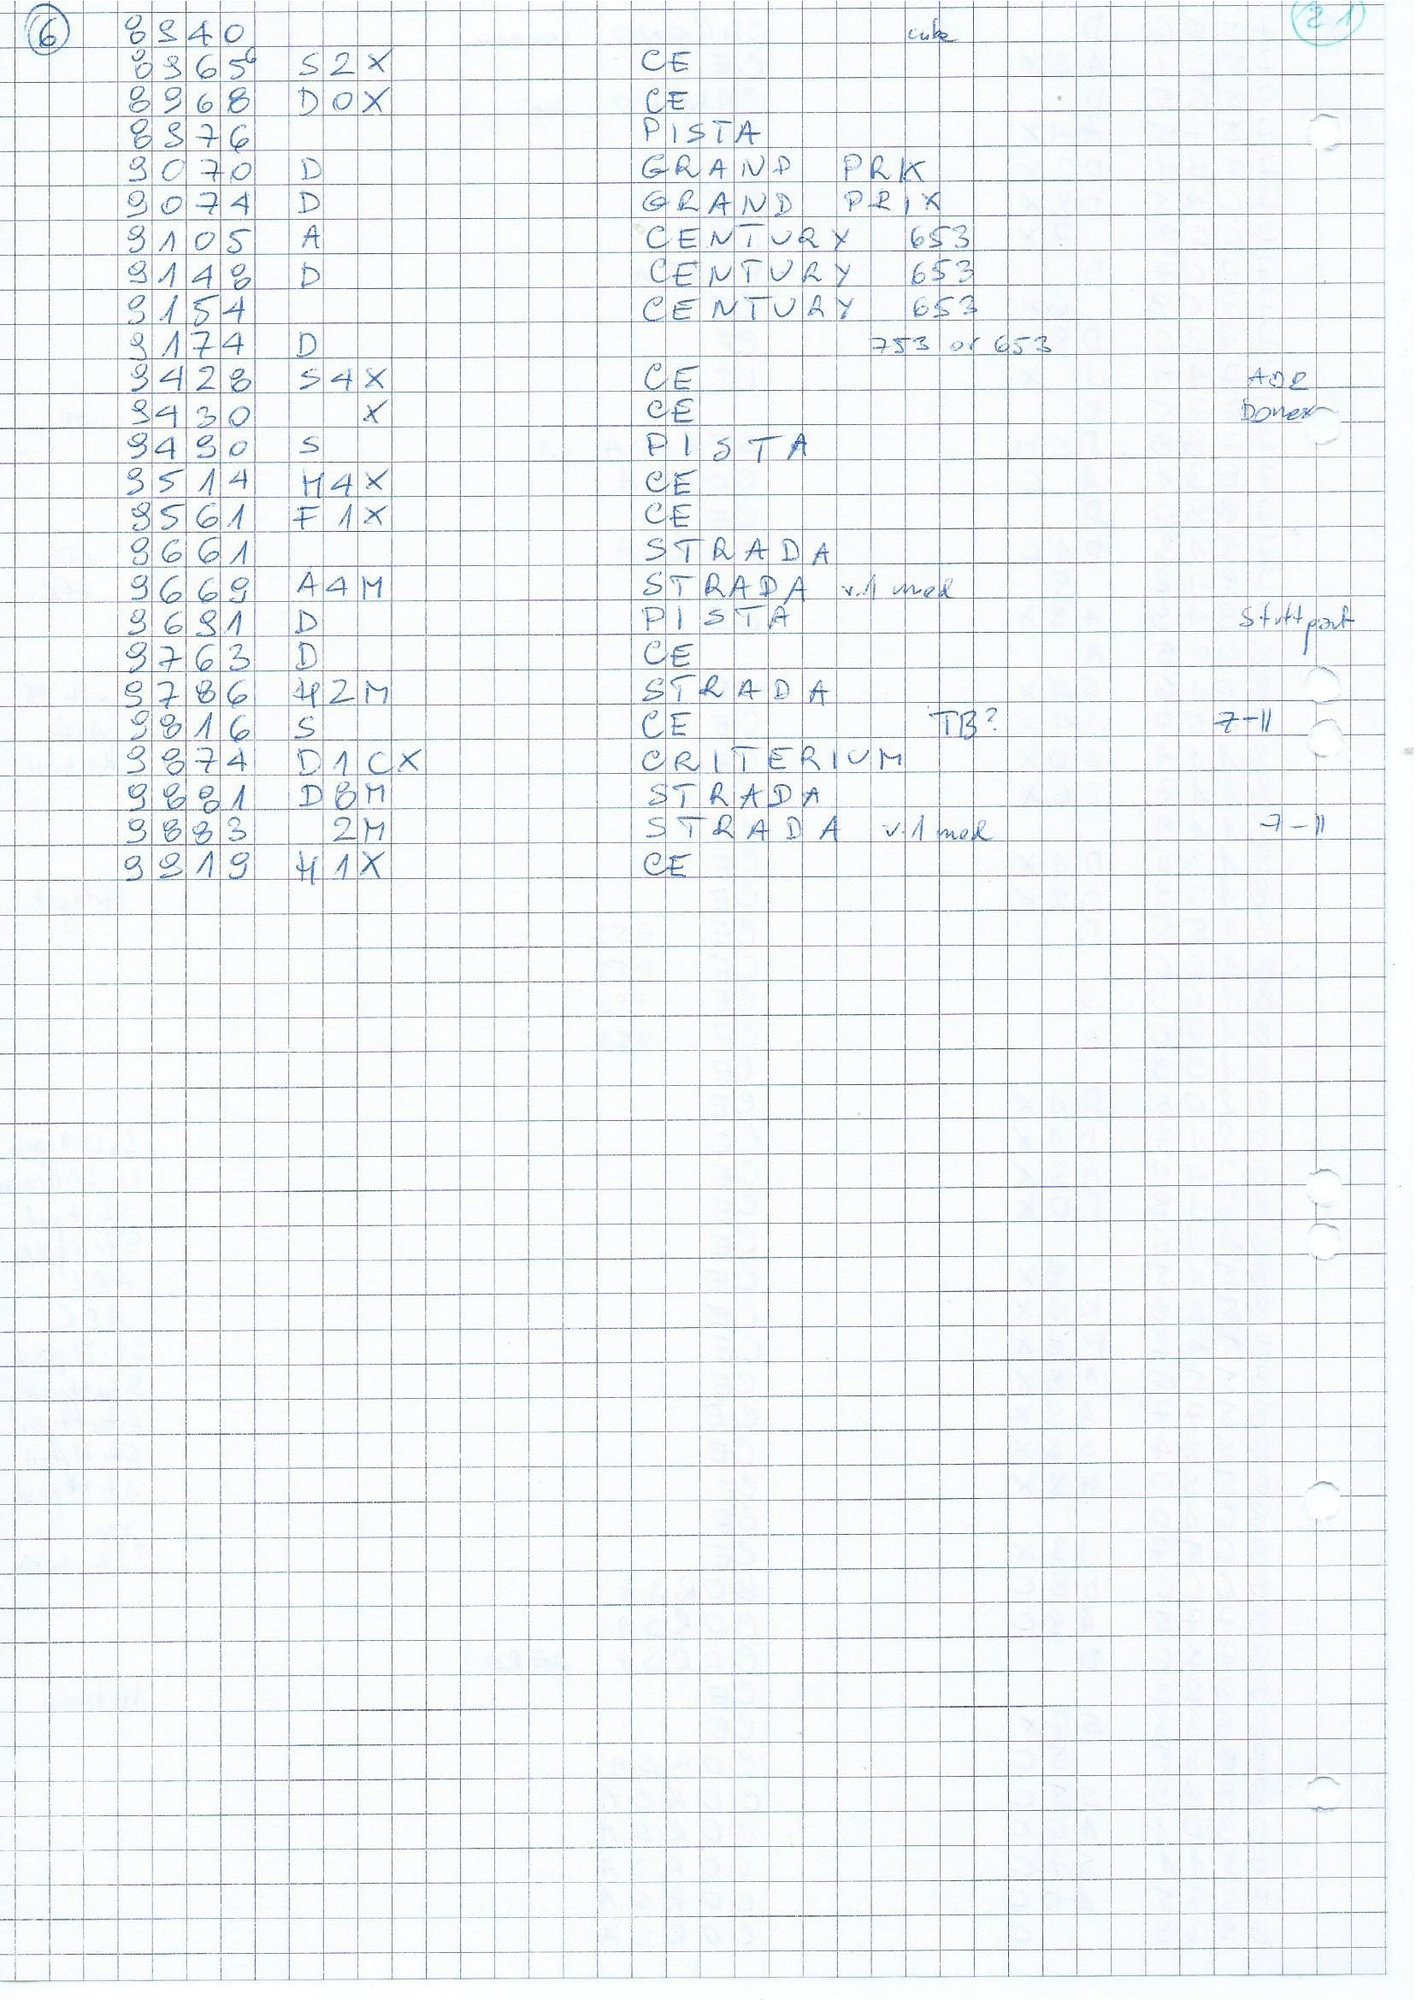 6 8940 21
8965 6 S2X CE
8968 D0X CE
8976 PISTA
9070 D GRAND PRIX
9074 D GRAND PRIX
9105 A CENTURY 653
9148 D CENTURY 653
9154 CENTURY 653
9174 D 753 or 653
9428 S4X CE ADR
9430 X CE
9490 S PISTA
9514 M4X CE
9561 F1X CE
9661 STRADA
9669 A4M STRADA v.1 mod
9691 D PISTA Stuttgart
9763 D CE
9786 H2M STRADA
9816 S CE TB? 7-11
9874 D1CX CRITERIUM
9881 D8M STRADA
9883 2M STRADA v.1 mod 7-11
9919 H1X CE